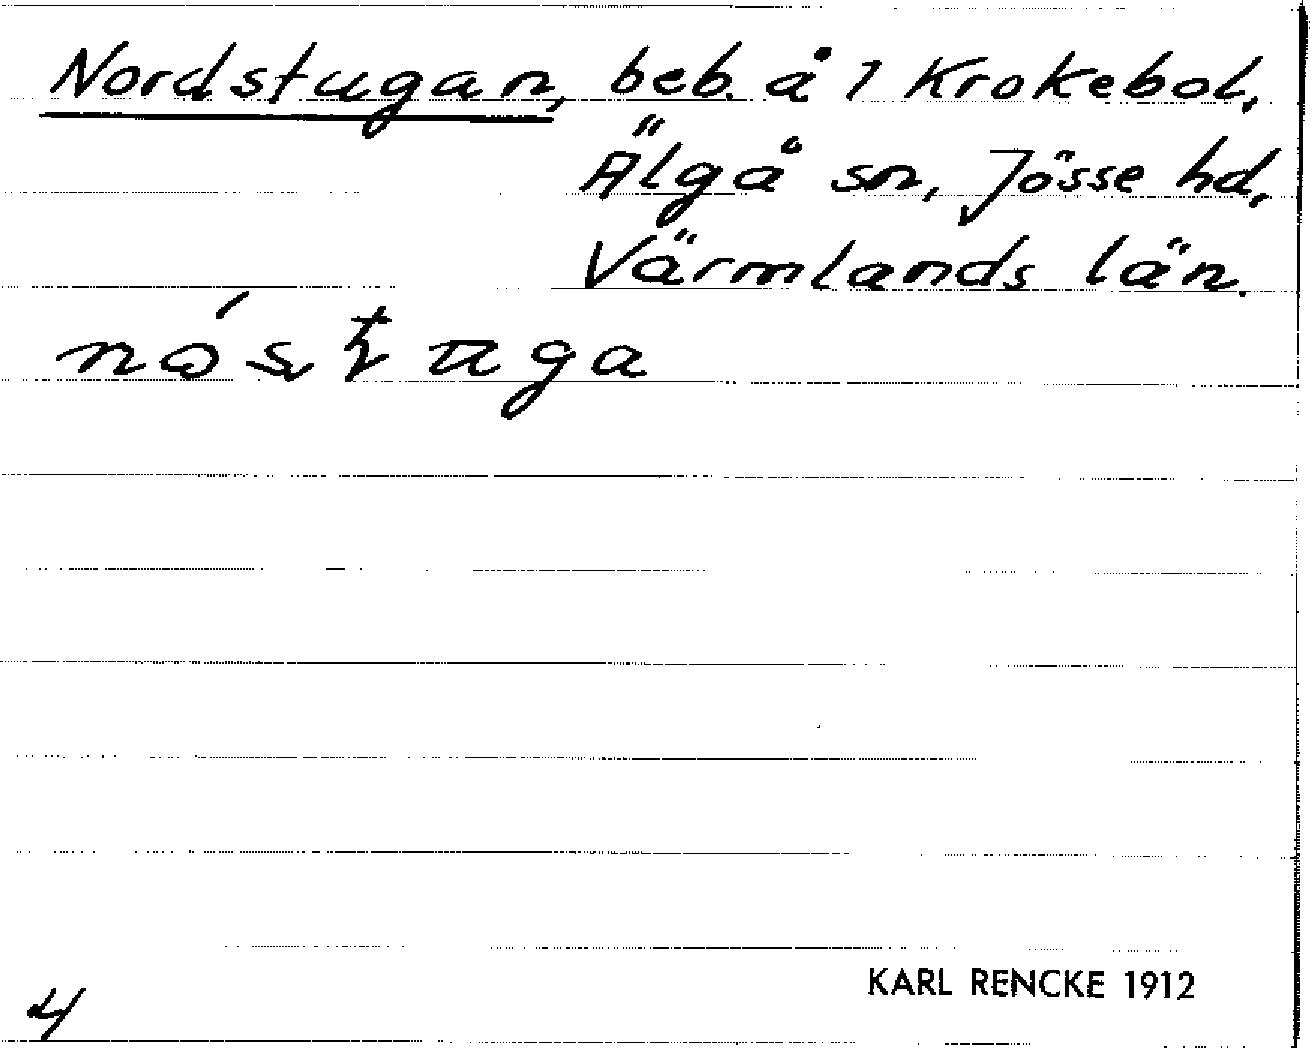 Nordstugan, beb. å 1 Krokebol,
Älgå sn, Jösse hd,
Värmlands län.
nóstuga
KARL RENCKE 1912
4